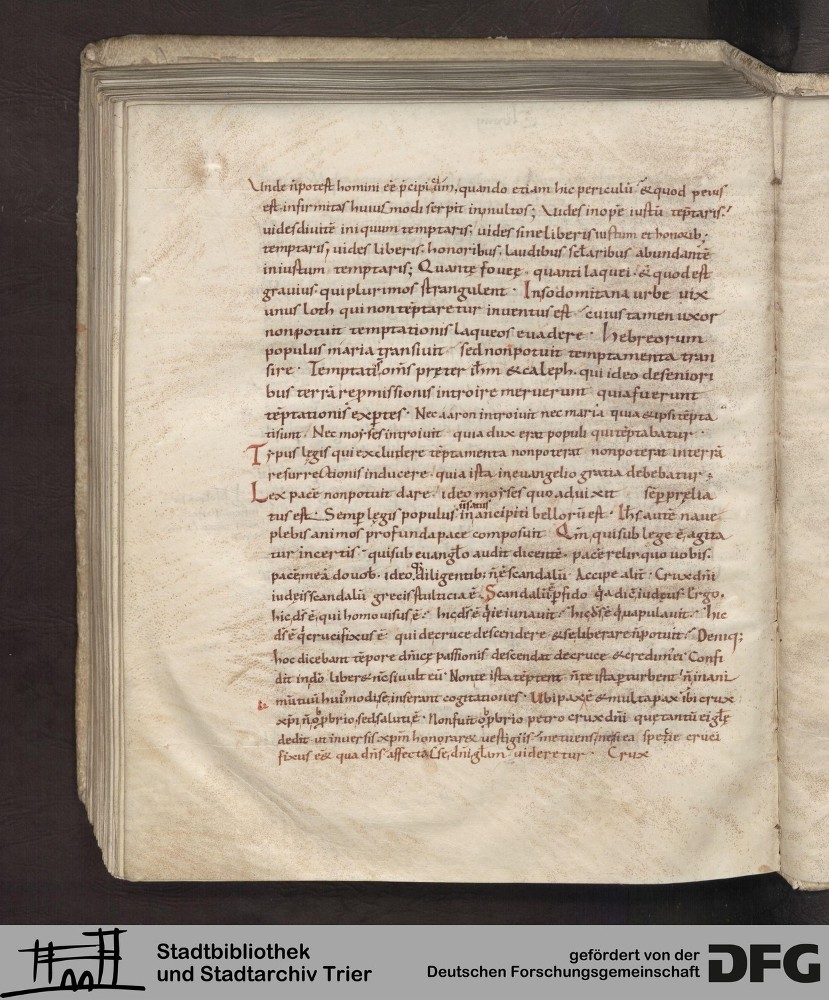 Vnde n̄potest homini eē p̄cipitiūm, quando etiam hic periculū &quod peius
est, infirmitas huius modi serpit in multos; Vides inopē iustū tēptaris;
uides diuitē iniquum temptaris; uides sine liberis iustum et honorib;
temptaris; uides liberis, honoribus, laudibus scl̄aribus abundantē
iniustum temptaris; Quantę foueę. quanti laquei. &quod est
grauius. qui plurimos strangulent. In sodomitana urbe uix
unus loth qui non tēptaretur inuentus est. cuius tamen uxor
non potuit temptationis laqueos euadere. hebreorum
populus maria transiuit sed non potuit temptamenta tran
sire. Temptati om̄s pręter ih̄m &caleph. qui ideo de seniori
bus terrā repmissionis introire meruerunt quia fuerunt
tēptationis exp̄tes. Nec aaron introiuit nec maria quia &ipsi tēpta
ti sunt. Nec moyses introiuit quia dux erat populi qui tēptabatur.
Typus legis qui excludere tēptamenta non poterat non poterat in terrā
resurrectionis inducere. quia ista in euangelio gratia debebatur;
Lex pacē non potuit dare. ideo moyses quo aduixit sēp pręlia
tus est. Semp legis populus in ancipiti bellorū est. Ih̄s autē naue
plebis animos profunda pace composuit. Qm̄, qui sub lege ē, agita
tur incertis. qui sub euangl̄o audit dicentē. pacē relinquo uobis.
pacē meā do uob. ideo diligentib; n̄ ē scandalū. Accipe alit̄. Crux dn̄i
iudeis scandalū grecis stulticia ē. Scandalū p̄fido q̄a dic̄ iudęus. Ergo,
hic, ds̄ ē, qui homo uisus ē. hic ds̄ ē q̄ ieiunauit. hic ds̄ ē q̄ uapulauit. hic
ds̄ ē q̄ crucifixus ē qui de cruce descendere &se liberare n̄potuit. Deniq;
hoc dicebant tēpore dn̄icę passionis descendat de cruce &credim̄ ei Confi
dit in dō liber& nc̄ si uult eū. Non te ista tēptent n̄ te ista pturbent n̄ inani
mūtuū hui' modi se, inserant cogitationes. Vbi pax ē &multa pax ibi crux
xp̄i, n̄ obp̄brio, sed saluti, ē. Non fuit obp̄brio petro crux dn̄i quę tantū ei gl̄ę
dedit. ut inuersis xp̄m honorar& uestigiis. metuens, ne si ea specie cruci
fixus ess& qua dn̄s affectasse, dn̄i gl̄am uideretur. Crux
Stadtbibliothek
und Stadtarchiv Trier
gefördert von der
Deutschen Forschungsgemeinschaft
DFG